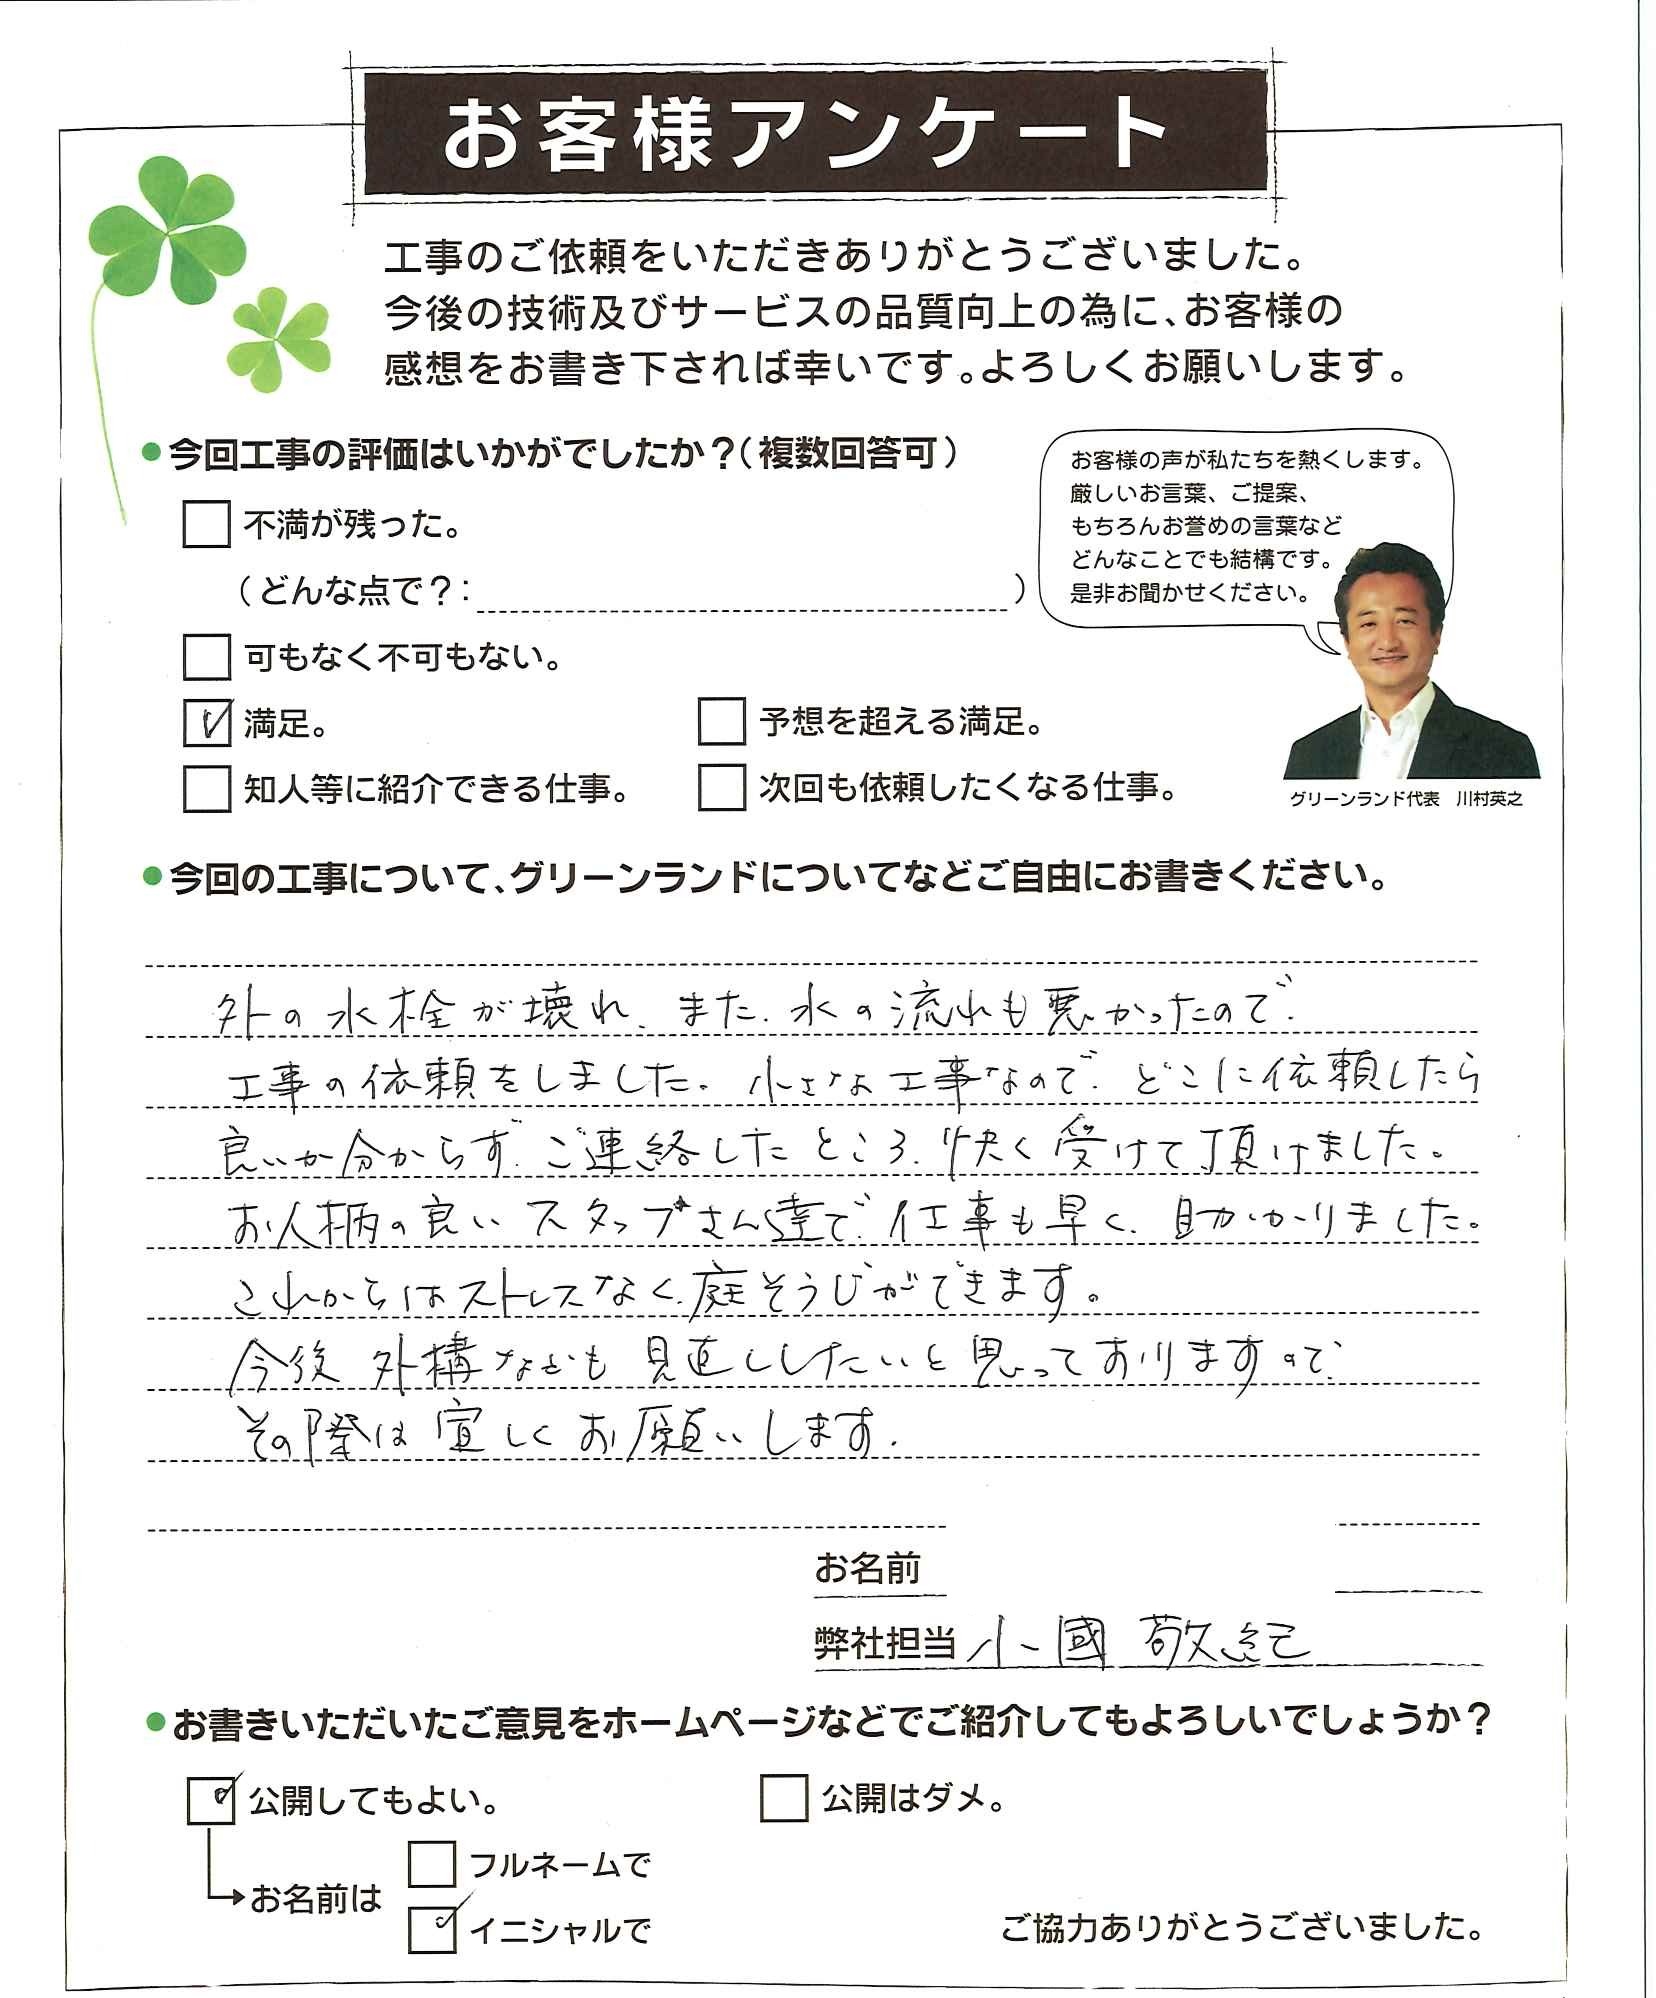 お客様アンケート
工事のご依頼をいただきありがとうございました。
今後の技術及びサービスの品質向上の為に、お客様の
感想をお書き下されば幸いです。よろしくお願いします。
●今回工事の評価はいかがでしたか？（複数回答可）
不満が残った。
（どんな点で？： ）
可もなく不可もない。
満足。
予想を超える満足。
知人等に紹介できる仕事。
次回も依頼したくなる仕事。
お客様の声が私たちを熱くします。
厳しいお言葉、ご提案、
もちろんお誉めの言葉など
どんなことでも結構です。
是非お聞かせください。
グリーンランド代表 川村英之
●今回の工事について、グリーンランドについてなどご自由にお書きください。
外の水栓が壊れ、また、水の流れも悪かったので、
工事の依頼をしました。小さな工事なので、どこに依頼したら
良いか分からず、ご連絡したところ、快く受けて頂けました。
お人柄の良いスタッフさん達で、仕事も早く、助かりました。
これからはストレスなく、庭そうじができます。
今後外構なども見直ししたいと思っておりますので、
その際は宜しくお願いします。
お名前
弊社担当 小國 敬紀
●お書きいただいたご意見をホームページなどでご紹介してもよろしいでしょうか？
公開してもよい。
公開はダメ。
お名前は
フルネームで
イニシャルで
ご協力ありがとうございました。